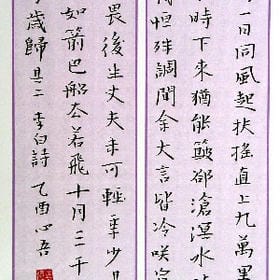 一日同風起扶搖直上九萬
時下來猶能簸卻滄溟水
恒殊調聞余大言皆冷咲宣
畏後生丈夫未可輕年少
如箭巴船去若飛十月三千
歲歸 其二 李白詩 乙酉心吾